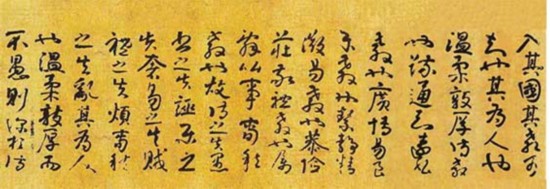 入其國其教可
知也其為人也
溫柔敦厚詩教
也疏通知遠書
教也廣博易良
樂教也絜靜精
微易教也恭儉
莊敬禮教也屬
辭比事春秋
教也故詩之失愚
書之失誣樂之
失奢易之失賊
禮之失煩春秋
之失亂其為人
也溫柔敦厚而
不愚則深於詩